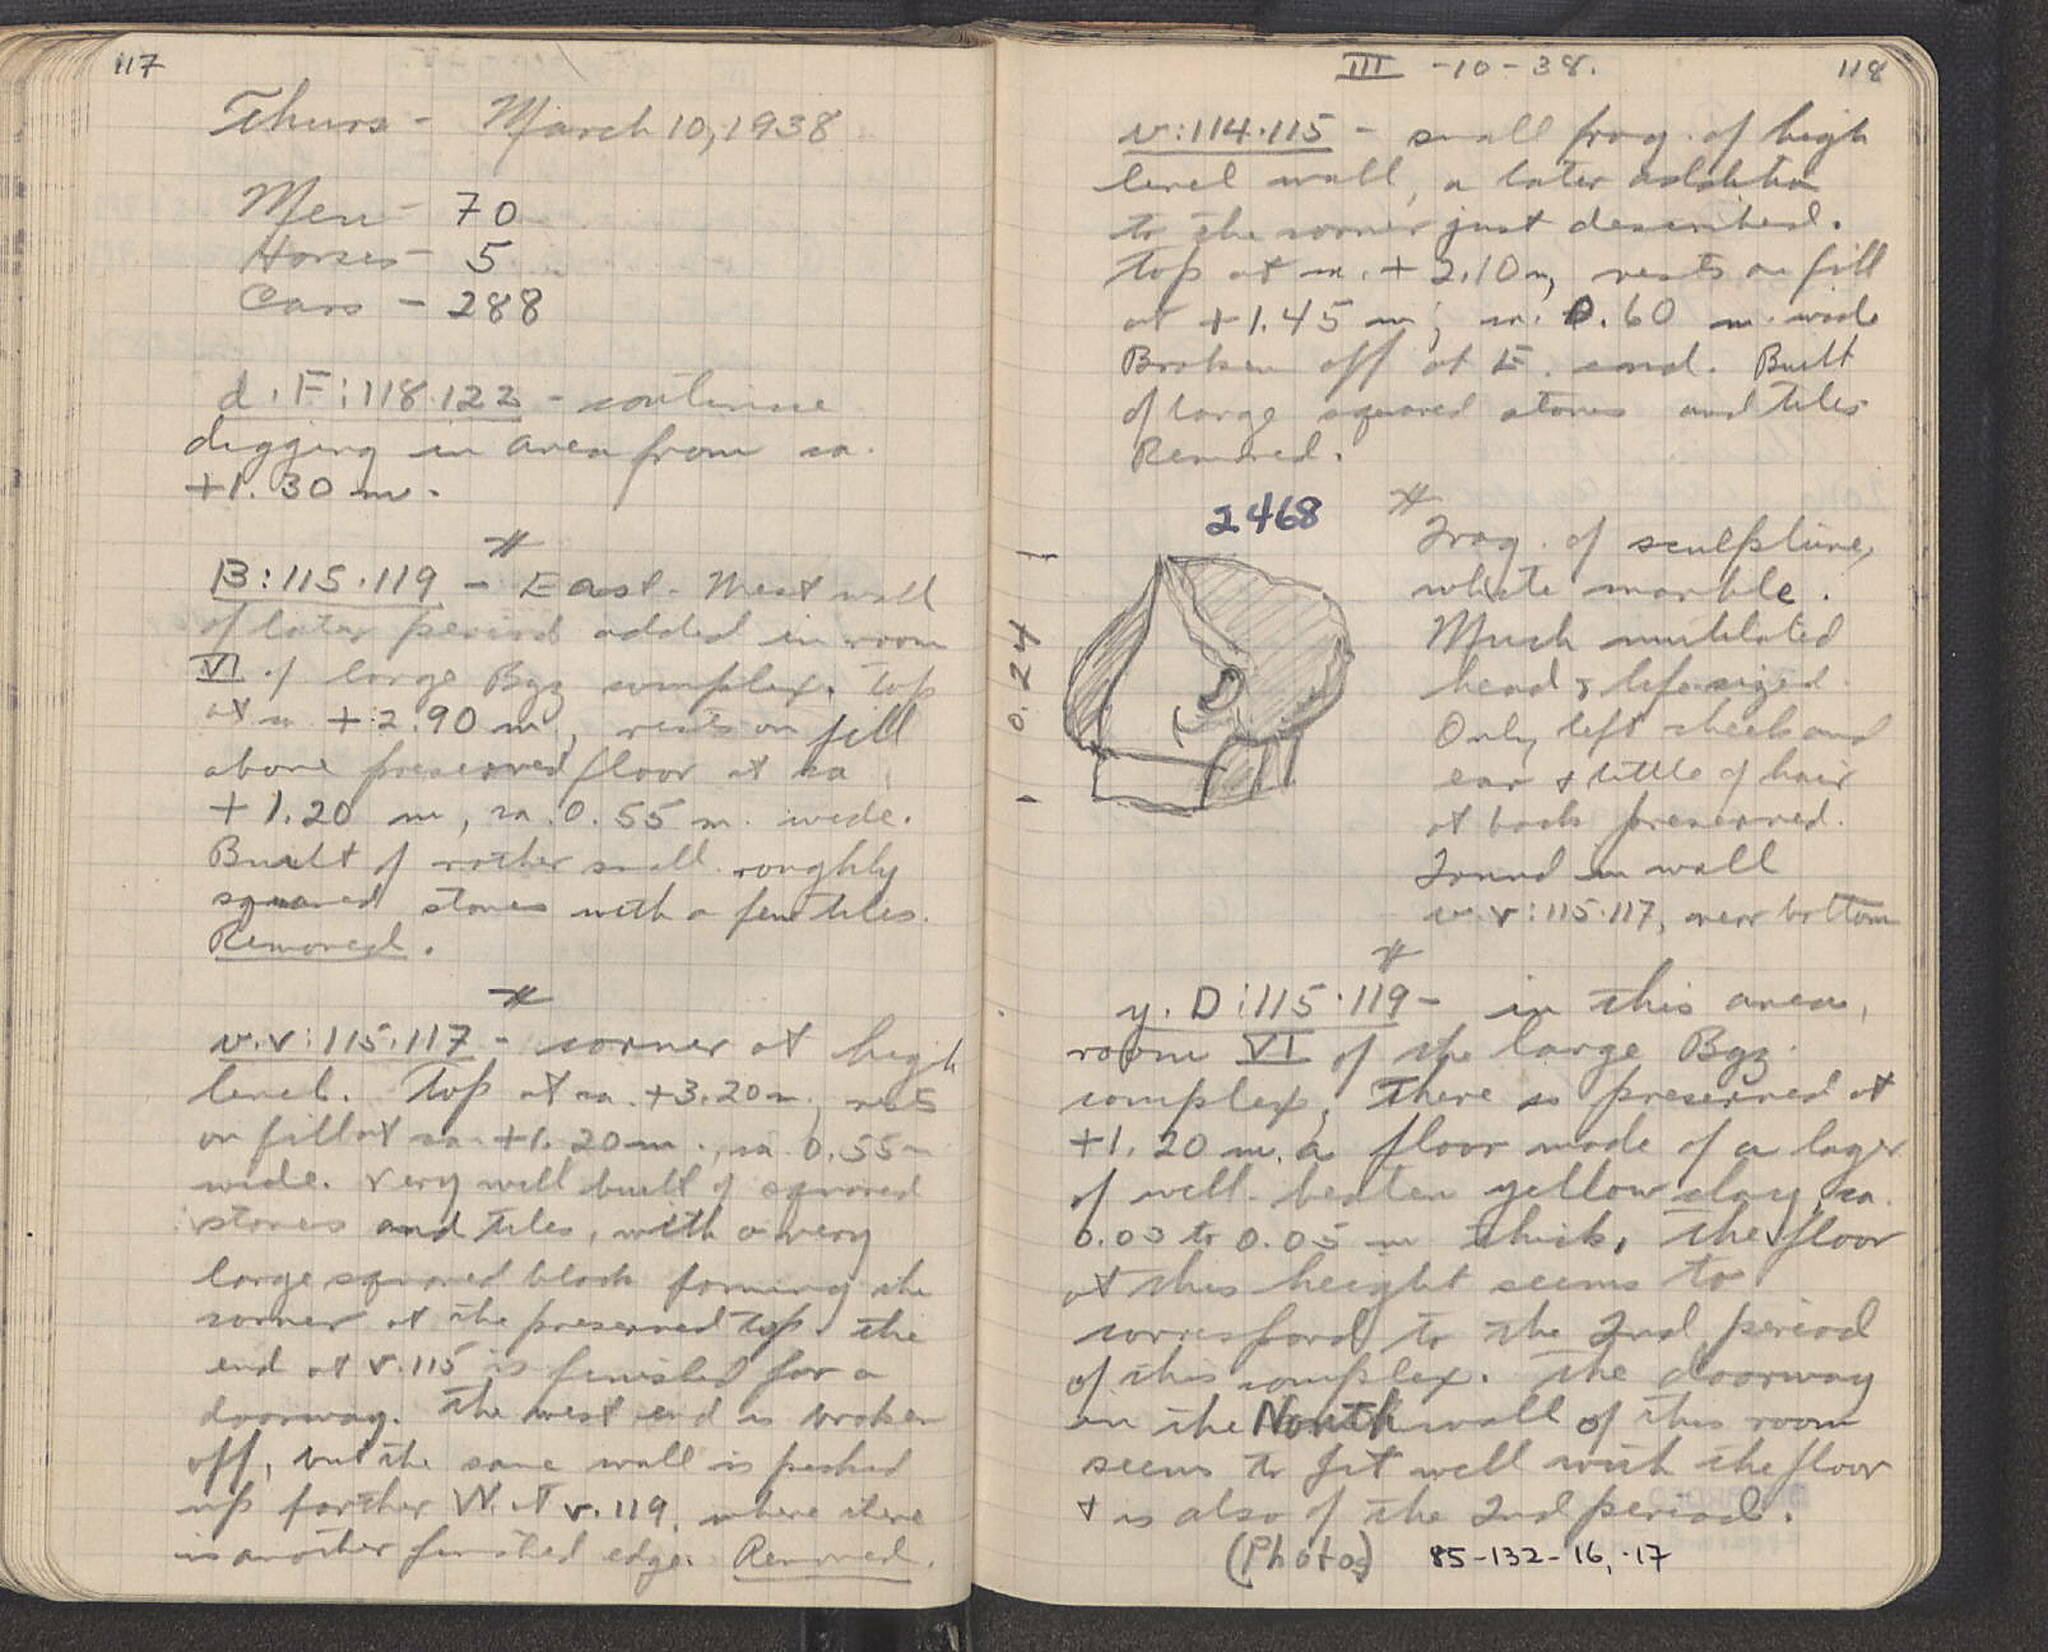 117
Thurs - March 10, 1938
Men - 70
Horses - 5
Cars - 288
d.F:118.122 - continue
digging in area from ca.
+1.30 m.
B:115.119 - East-West wall
of later period added in room
VI of large Byz complex. Top
at ca +2.90 m., rests on fill
above preserved floor at ca
+1.20 m, ca. 0.55 m. wide.
Built of rather small roughly
squared stones with a few tiles.
Removed.
v.v:115.117 - corner at high
level. Top at ca. +3.20 m., rests
on fill at ca. +1.20 m., ca. 0.55 m
wide. Very well built of squared
stones and tiles, with a very
large squared block forming the
corner at the preserved top. The
end at v.115 is finished for a
doorway. The west end is broken
off, but the same wall is picked
up farther W. at v.119, where there
is another finished edge. Removed.
III -10-38.
118
v:114.115 - small frag. of high
level wall, a later addition
to the corner just described.
Top at ca. +2.10 m, rests on fill
at +1.45 m; ca. 0.60 m. wide
Broken off at E. end. Built
of large squared stones and tiles
Removed.
2468
0.24
Frag. of sculpture,
white marble.
Much mutilated
head, lifesized.
Only left cheek and
ear + little of hair
at back preserved.
Found in wall
v.v:115.117, near bottom
y.D:115.119 - in this area,
room VI of the large Byz.
complex, there is preserved at
+1.20 m. a floor made of a layer
of well-beaten yellow clay, ca.
0.03 to 0.05 m thick. The floor
at this height seems to
correspond to the 2nd period
of this complex. The doorway
in the North wall of this room
seems to fit well with the floor
+ is also of the 2nd period.
(Photos) 85-132-16, -17